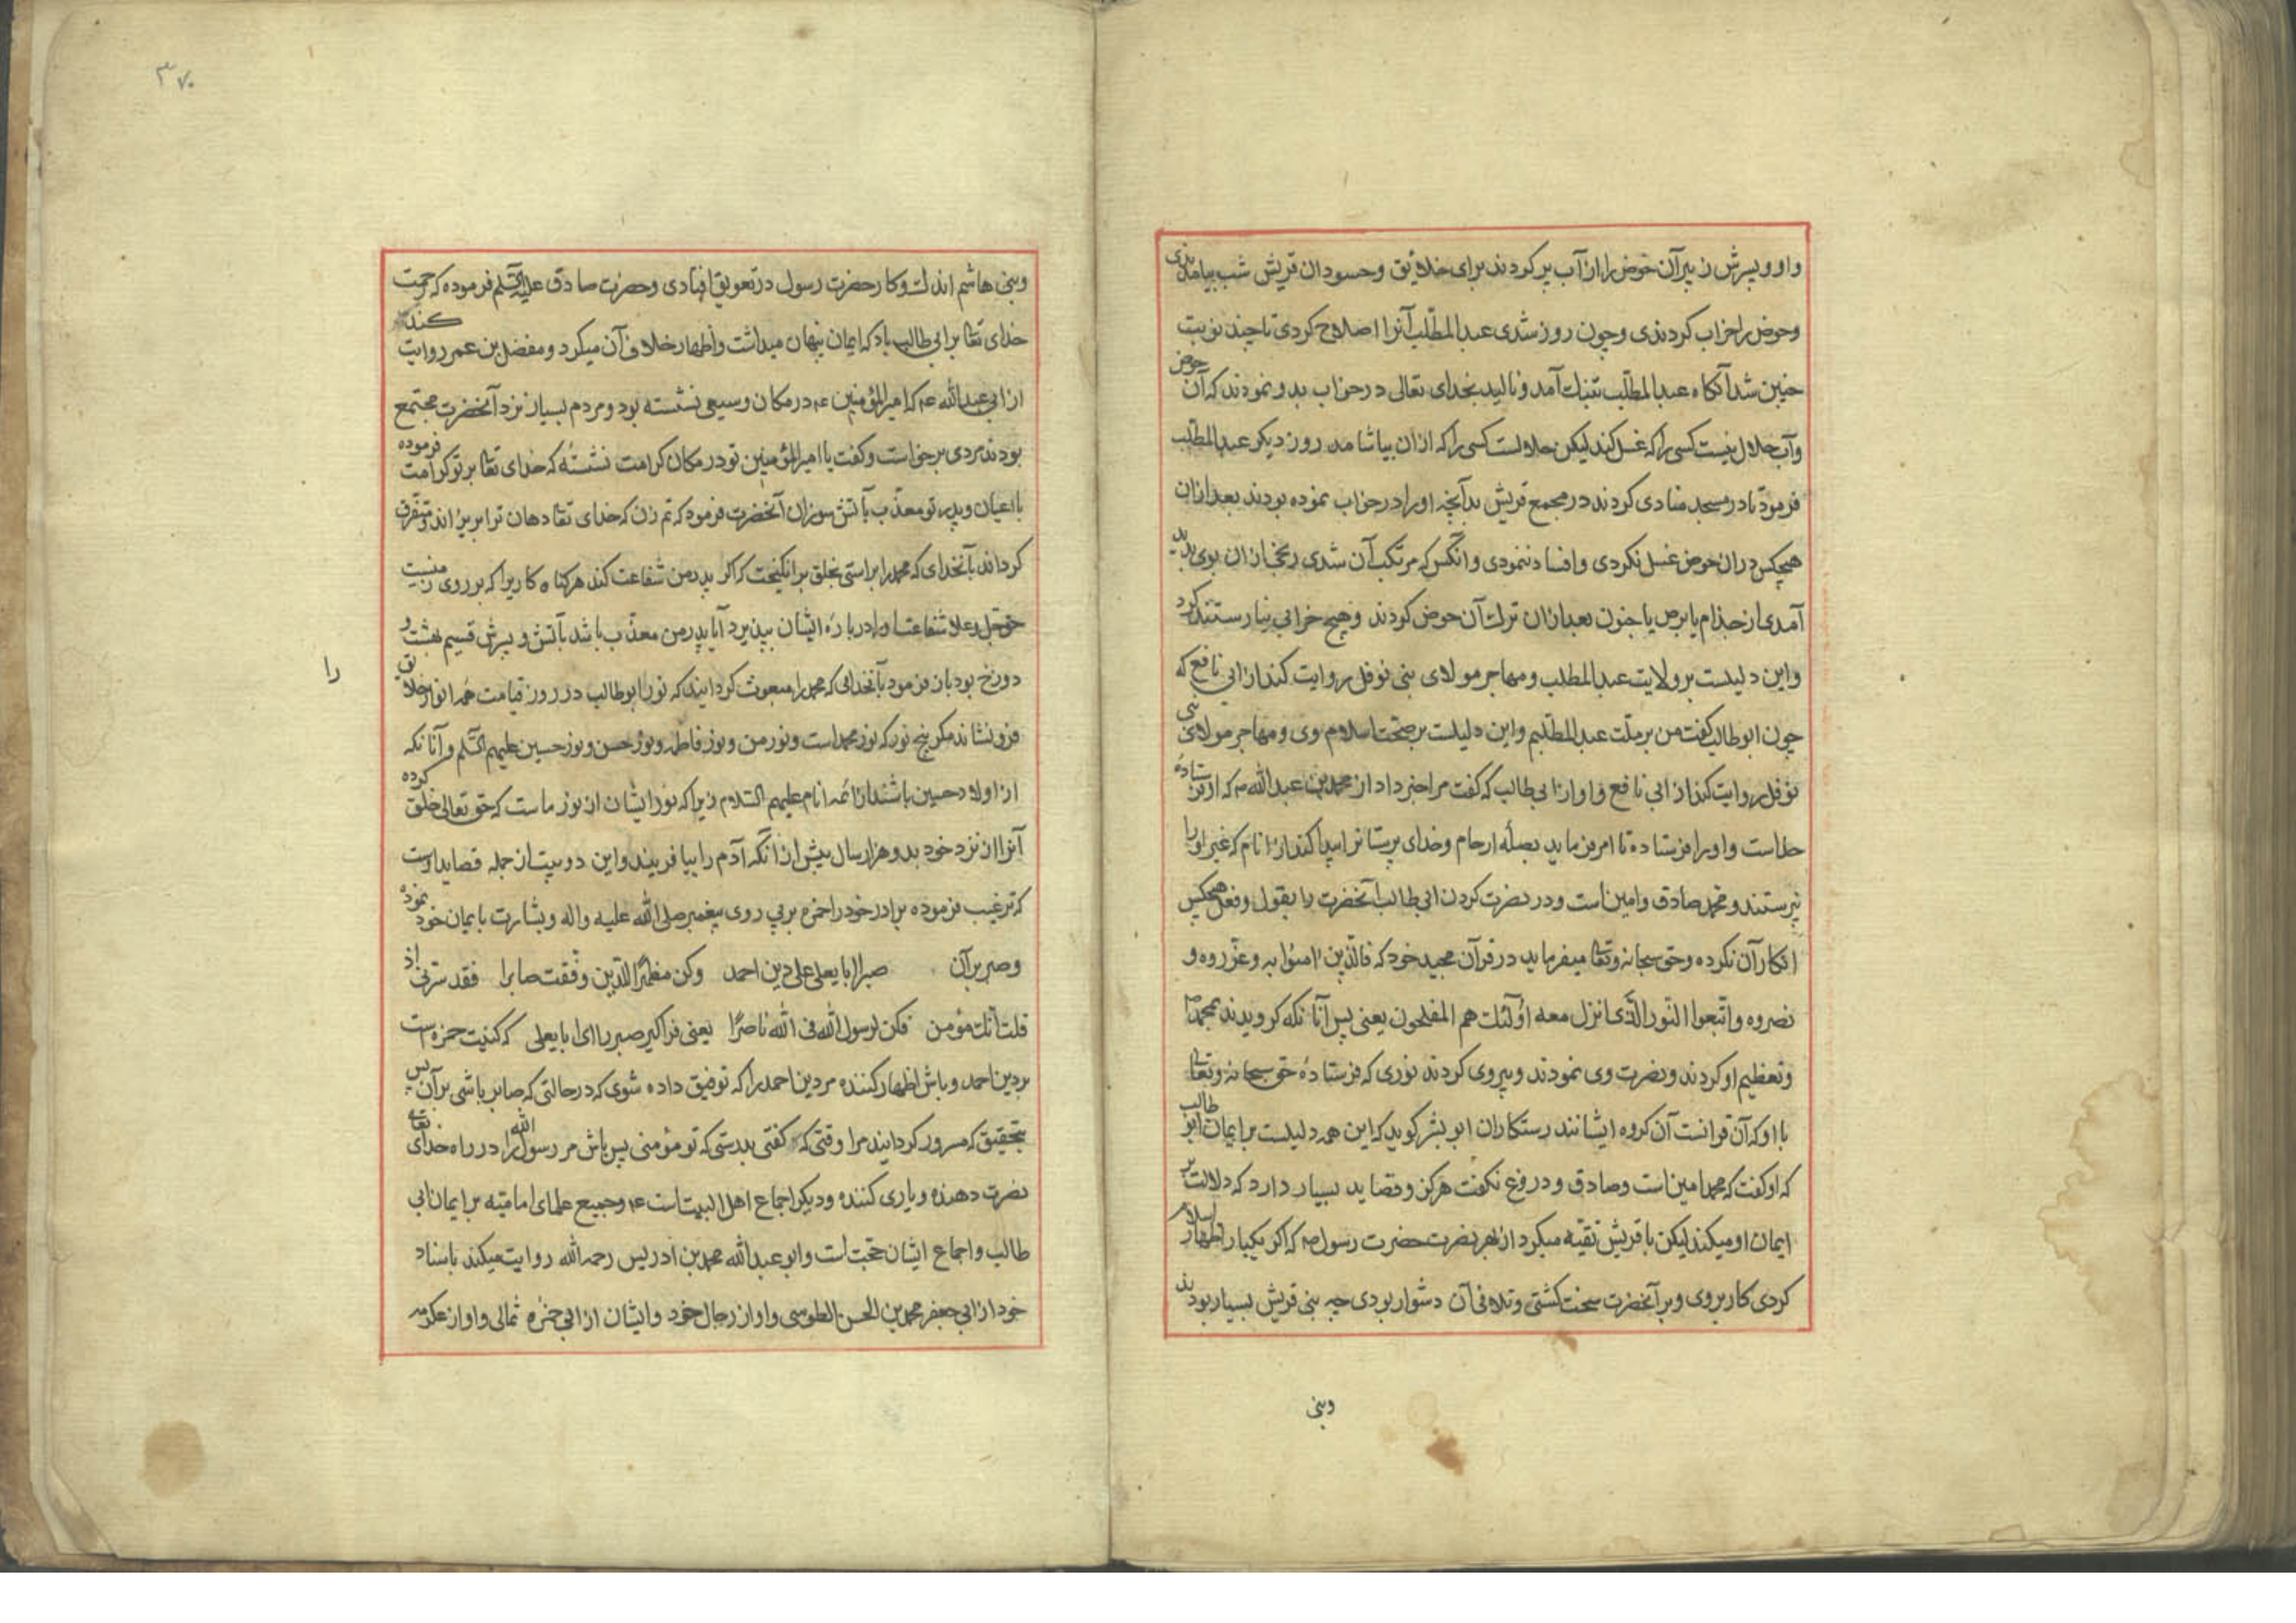 واو وپسرش زبیر آن حوض را از آب پر کردند برای خلائق وحسودان قریش شب بیامدندی
وحوض را خراب کردندی وچون روز شدی عبد المطّلب آنرا اصلاح کردی تا چند نوبت
چنین شد آنکاه عبد المطّلب بتنک آمد ونالید بخدای تعالی در خواب بدو نمودند که آن حوض
وآب حلال نیست کسی را که غسل کند لیکن حلالست کسی را که ازان بیاشامد روز دیکر عبد المطّلب
فرمود تا در مسجد منادی کردند در مجمع قریش بدآنچه اورا در خواب نموده بودند بعد ازان
هیچکس دران حوض غسل نکردی وافساد ننمودی وآنکس که مرتکب آن شدی رنجی ازان بوی پدید
آمدی از جذام یا برص یا جنون بعد ازان ترک آن حوض کردند وهیچ خرابی نیارستند کرد
واین دلیلست بر ولایت عبد المطلب ومهاجر مولای بنی نوفل روایت کند از ابی نافع که
چون ابو طالب کفت من بر ملّت عبد المطّلبم واین دلیلست بر صحّت اسلام وی ومهاجر مولای بنی
نوفل روایت کند از ابی نافع واو از ابی طالب که کفت مرا خبر داد از محمد بن عبد الله ص که او فرستادهٔ
خداست واو را فرستاده تا امر فرماید بصلهٔ ارحام وخدای پرستانرا پیدا کند از انام که غیر او را
نپرستند ومحمد صادق وامین است ودر نصرت کردن ابی طالب آنحضرت را بقول وفعل هیچکس
انکار آن نکرده وحق سبحانه وتعا میفرماید در قرآن مجید خود که فالّذین امنوا به وعزّروه و
نصروه واتّبعوا النّور الّذی انزل معه اولٓئک هم المفلحون یعنی پس آنانکه کرویدند بمحمد ص
وتعظیم او کردند ونصرت وی نمودند وپیروی کردند نوری که فرستادهٔ حق سبحانه وتعا
با او که آن قرانست آن کروه ایشانند رستکاران ابو بشر کوید که این همه دلیلست بر ایمان ابو طالب
که او کفت که محمد امین است وصادق ودروغ نکفت هرکز وقصاید بسیار دارد که دلالت بر
ایمان او میکند لیکن با قریش تقیّه میکرد از بهر نصرت حضرت رسول ص که اکر یکبار اظهار اسلام
کردی کار بروی وبر آنحضرت سخت کشتی وتلافی آن دشوار بودی چه بنی قریش بسیار بودند
وبنی
۳۷۰
وبنی هاشم اندک وکار حضرت رسول در تعویق افتادی وحضرت صادق علیه السّلم فرموده که رحمت
خدای تعا بر ابی طالب باد که ایمان پنهان میداشت واظهار خلاف آن میکرد ومفضل بن عمر روایت کند
از ابی عبد الله ع که امیر المؤمنین ع در مکان وسیعی نشسته بود ومردم بسیار نزد آنحضرت مجتمع
بودند مردی برخواست وکفت یا امیر المؤمنین تو در مکان کرامت نشستهٔ که خدای تعا بر تو کرامت فرموده
باعیان وپدر تو معذّب بآتش سوزان آنحضرت فرمود که تم زن که خدای تعا دهان ترا بریزاند ومتفرّق
کرداند بآنخدای که محمد را براستی بخلق برانکیخت که اکر پدر من شفاعت کند هر کناه کاریرا که بر روی زمینست
حق جل وعلا شفاعت او را در بارهٔ ایشان بپذیرد آیا پدر من معذّب باشد بآتش وپسرش قسیم بهشت و
دوزخ بود بان فرمود بآنخدائی که محمد را مبعوث کردانید که نور ابو طالب در روز قیامت همه انوار خلایق را
فرو نشاند مکر پنج نور که نور محمد است ونور من ونور فاطمه ونور حسن ونور حسین علیهم السّلم وآنانکه
از اولاد حسین باشند از ائمه انام علیهم السّلام زیرا که نور ایشان از نور ماست که حق تعالی خلق کرده
آنرا از نزد خود بدو هزار سال پیش از آنکه آدم را بیافریند واین دو بیت از جمله قصاید اوست
که ترغیب فرموده برادر خود را حمزه بر پی روی پیغمبر صلی الله علیه واله وبشارت بایمان خود نموده
وصبر بر آن صبرا ابا یعلی علی دین احمد وکن مظهرًا للدّین وفّقت صابرا فقد سرّنی اذ
قلت انّک مؤمن فکن لرسول الله فی الله ناصرًا یعنی فراکیر صبر را ای ابا یعلی که کنیت حمزه است
بر دین احمد وباش اظهار کننده مر دین احمد را که توفیق داده شوی که در حالتی که صابر باشی بر آن پس
بتحقیق که مسرور کردانیدند مرا وقتی که کفتی بدرستی که تو مؤمنی پس باش مر رسول الله را در راه خدای تعالی
نصرت دهنده ویاری کننده ودیکر اجماع اهل البیت است ع وجمیع علمای امامیّه بر ایمان ابی
طالب واجماع ایشان حجّت است وابو عبد الله محمد بن ادریس رحمه الله روایت میکند باسناد
خود از ابی جعفر محمد بن الحسن الطوسی واو از رجال خود وایشان از ابی حمزه ثمالی واو از عکرمه